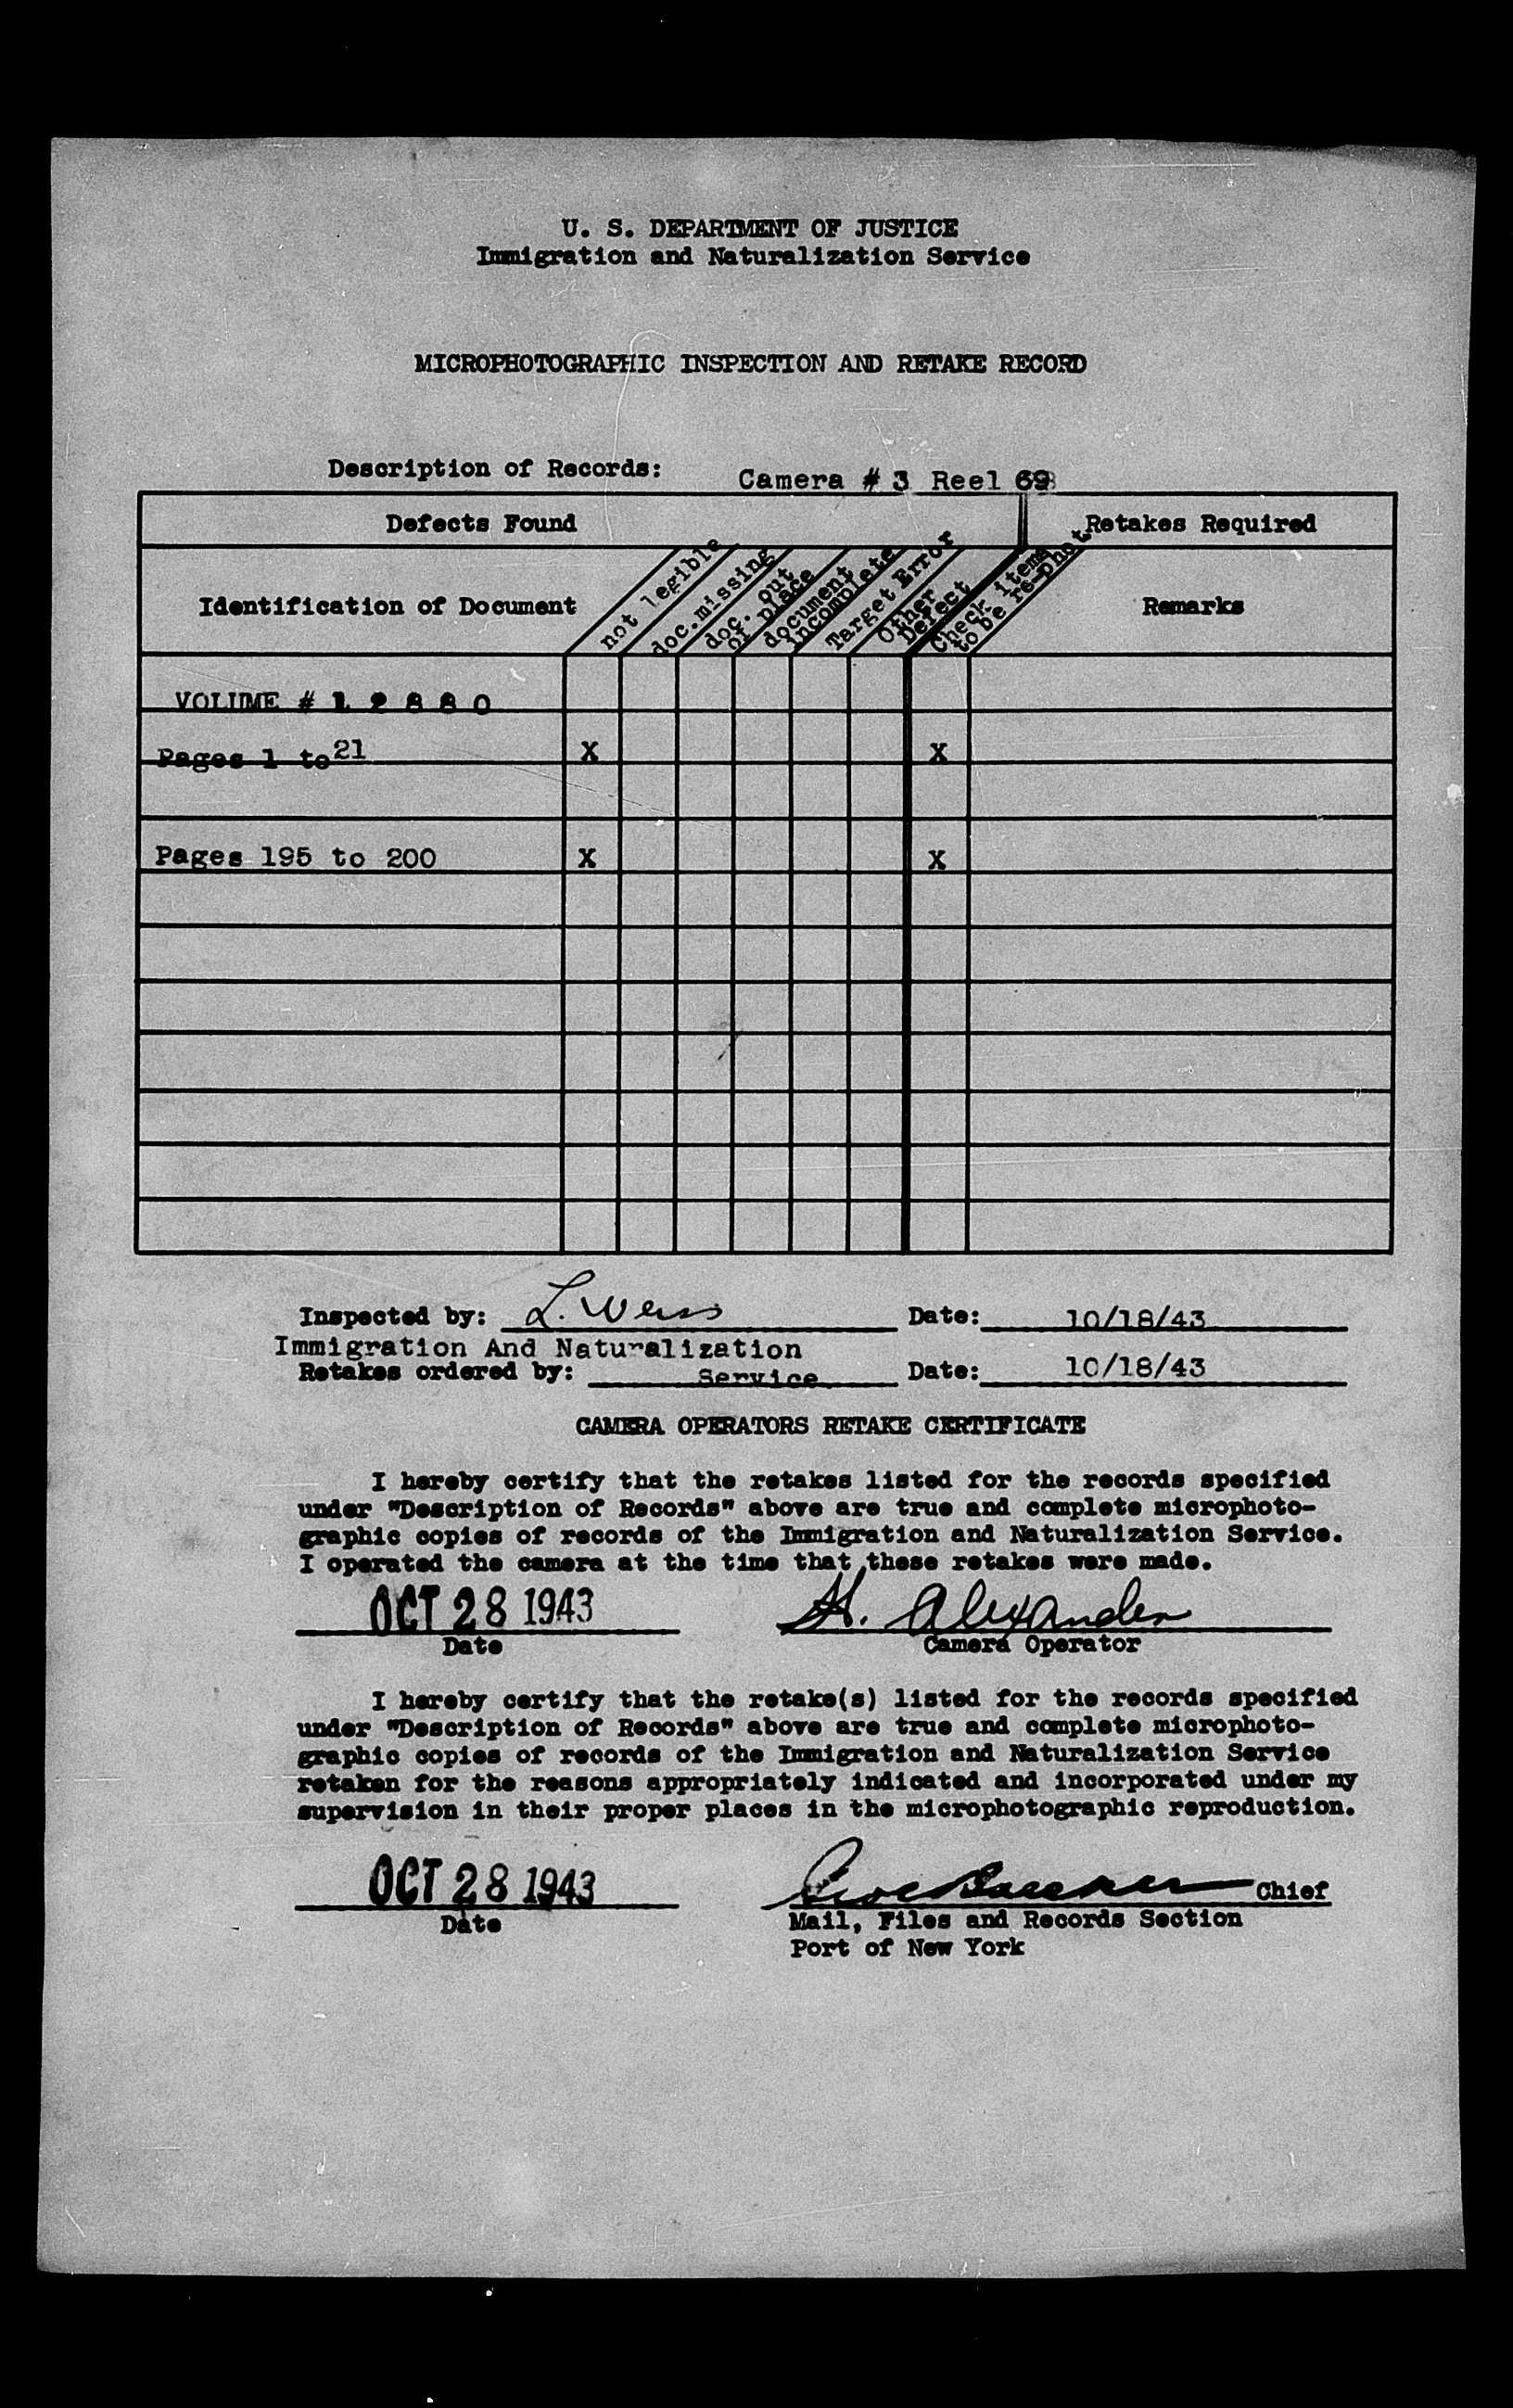 U. S. DEPARTMENT OF JUSTICE
Immigration and Naturalization Service
MICROPHOTOGRAPHIC INSPECTION AND RETAKE RECORD
Description of Records: Camera # 3 Reel
Defects Found Retakes Required
Identification of Document not legible doc.missing doc. out of place document incomplete Target Error Other Defect Check items to be re-phot. Remarks
VOLUME # 1 2 8 8 0
Pages 1 to 21 X X
Pages 195 to 200 X X
Inspected by: L. Weiss Date: 10/18/43
Immigration And Naturalization
Retakes ordered by: Service Date: 10/18/43
CAMERA OPERATORS RETAKE CERTIFICATE
I hereby certify that the retakes listed for the records specified
under "Description of Records" above are true and complete microphoto-
graphic copies of records of the Immigration and Naturalization Service.
I operated the camera at the time that these retakes were made.
OCT 28 1943 H. Alexander
Date Camera Operator
I hereby certify that the retake(s) listed for the records specified
under "Description of Records" above are true and complete microphoto-
graphic copies of records of the Immigration and Naturalization Service
retaken for the reasons appropriately indicated and incorporated under my
supervision in their proper places in the microphotographic reproduction.
OCT 28 1943 Chief
Date Mail, Files and Records Section
Port of New York